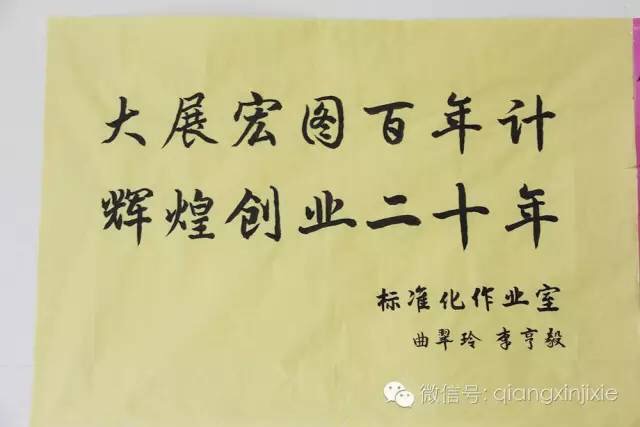 大展宏图百年计
辉煌创业二十年
标准化作业室
曲翠玲 李亨毅
微信号: qiangxinjixie